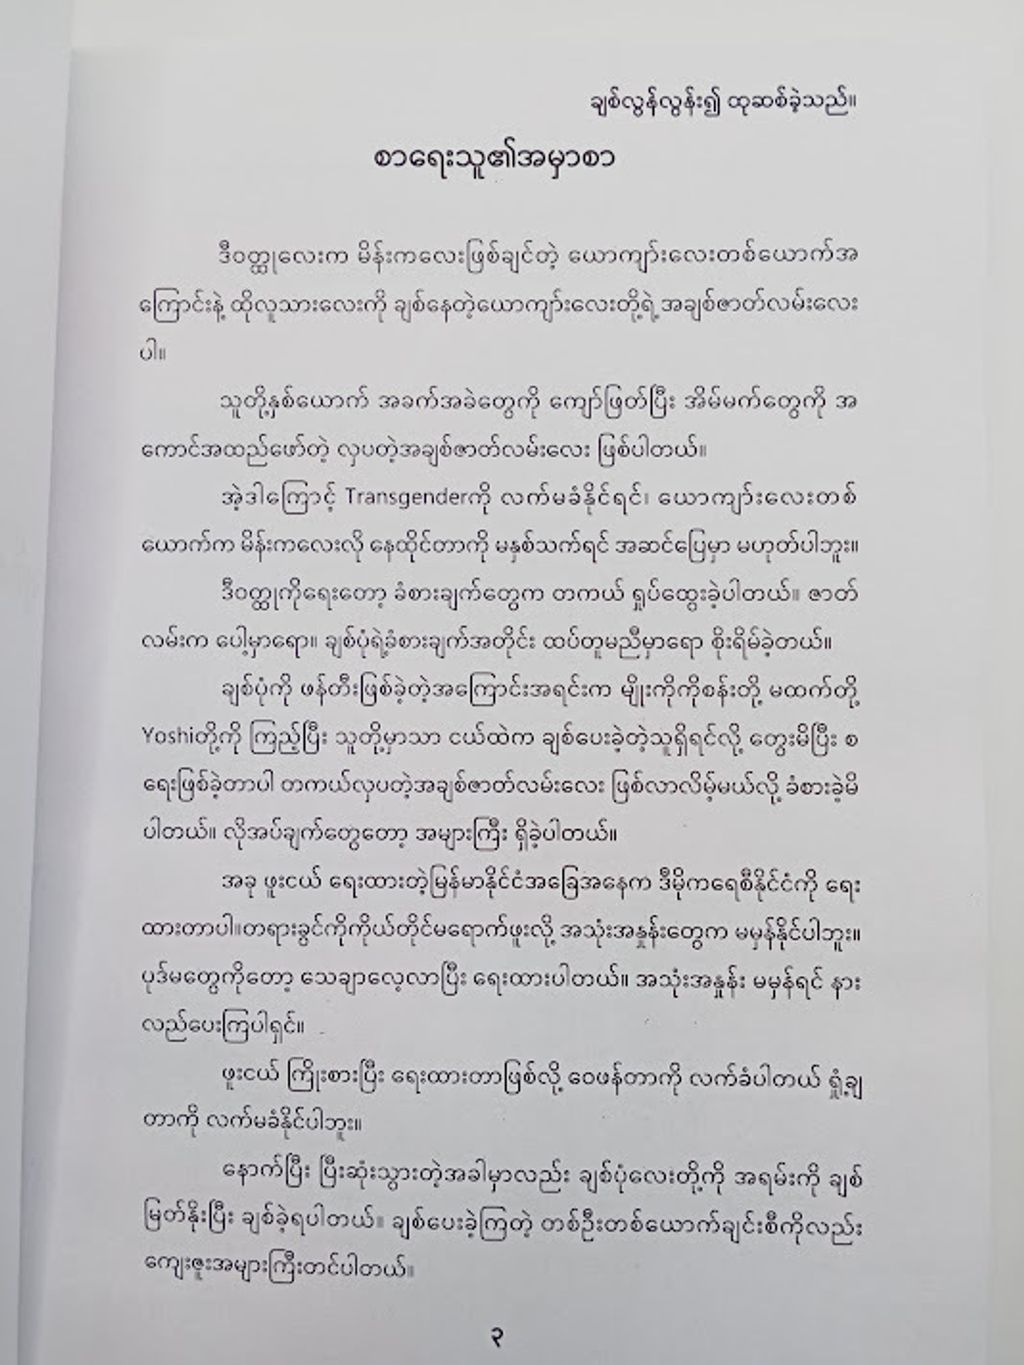 ချစ်လွန်လွန်း၍ ထုဆစ်ခဲ့သည်။
စာရေးသူ၏အမှာစာ
ဒီဝတ္ထုလေးက မိန်းကလေးဖြစ်ချင်တဲ့ ယောကျာ်းလေးတစ်ယောက်အ
ကြောင်းနဲ့ ထိုလူသားလေးကို ချစ်နေတဲ့ယောကျာ်းလေးတို့ရဲ့အချစ်ဇာတ်လမ်းလေး
ပါ။
သူတို့နှစ်ယောက် အခက်အခဲတွေကို ကျော်ဖြတ်ပြီး အိမ်မက်တွေကို အ
ကောင်အထည်ဖော်တဲ့ လှပတဲ့အချစ်ဇာတ်လမ်းလေး ဖြစ်ပါတယ်။
အဲ့ဒါကြောင့် Transgenderကို လက်မခံနိုင်ရင်၊ ယောကျာ်းလေးတစ်
ယောက်က မိန်းကလေးလို နေထိုင်တာကို မနှစ်သက်ရင် အဆင်ပြေမှာ မဟုတ်ပါဘူး။
ဒီဝတ္ထုကိုရေးတော့ ခံစားချက်တွေက တကယ် ရှုပ်ထွေးခဲ့ပါတယ်။ ဇာတ်
လမ်းက ပေါ့မှာရော။ ချစ်ပုံရဲ့ခံစားချက်အတိုင်း ထပ်တူမညီမှာရော စိုးရိမ်ခဲ့တယ်။
ချစ်ပုံကို ဖန်တီးဖြစ်ခဲ့တဲ့အကြောင်းအရင်းက မျိုးကိုကိုစန်းတို့ မထက်တို့
Yoshiတို့ကို ကြည့်ပြီး သူတို့မှာသာ ငယ်ထဲက ချစ်ပေးခဲ့တဲ့သူရှိရင်လို့ တွေးမိပြီး စ
ရေးဖြစ်ခဲ့တာပါ တကယ်လှပတဲ့အချစ်ဇာတ်လမ်းလေး ဖြစ်လာလိမ့်မယ်လို့ ခံစားခဲ့မိ
ပါတယ်။ လိုအပ်ချက်တွေတော့ အများကြီး ရှိခဲ့ပါတယ်။
အခု ဖူးငယ် ရေးထားတဲ့မြန်မာနိုင်ငံအခြေအနေက ဒီမိုကရေစီနိုင်ငံကို ရေး
ထားတာပါ။တရားခွင်ကိုကိုယ်တိုင်မရောက်ဖူးလို့ အသုံးအနှုန်းတွေက မမှန်နိုင်ပါဘူး။
ပုဒ်မတွေကိုတော့ သေချာလေ့လာပြီး ရေးထားပါတယ်။ အသုံးအနှုန်း မမှန်ရင် နား
လည်ပေးကြပါရှင်။
ဖူးငယ် ကြိုးစားပြီး ရေးထားတာဖြစ်လို့ ဝေဖန်တာကို လက်ခံပါတယ် ရှုံ့ချ
တာကို လက်မခံနိုင်ပါဘူး။
နောက်ပြီး ပြီးဆုံးသွားတဲ့အခါမှာလည်း ချစ်ပုံလေးတို့ကို အရမ်းကို ချစ်
မြတ်နိုးပြီး ချစ်ခဲ့ရပါတယ်။ ချစ်ပေးခဲ့ကြတဲ့ တစ်ဦးတစ်ယောက်ချင်းစီကိုလည်း
ကျေးဇူးအများကြီးတင်ပါတယ်။
၃